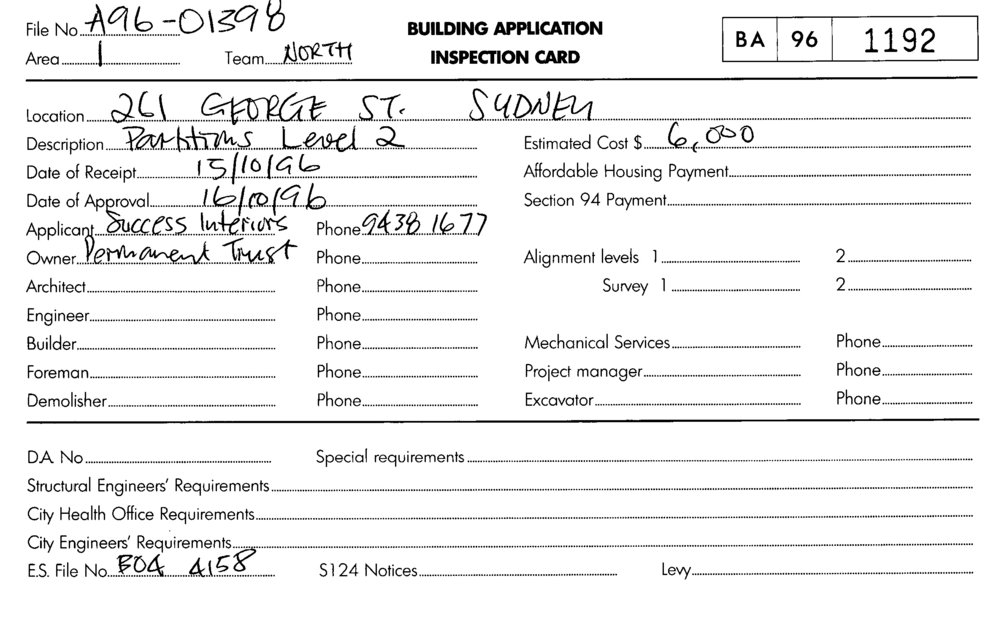 File No. A96-01398 BUILDING APPLICATION BA 96 1192
Area 1 Team NORTH INSPECTION CARD
Location 261 GEORGE ST. SYDNEY
Description Partitions Level 2 Estimated Cost $ 6,000
Date of Receipt 15/10/96 Affordable Housing Payment
Date of Approval 16/10/96 Section 94 Payment
Applicant Success Interiors Phone 9438 1677
Owner Permanent Trust Phone Alignment levels 1 2
Architect Phone Survey 1 2
Engineer Phone
Builder Phone Mechanical Services Phone
Foreman Phone Project manager Phone
Demolisher Phone Excavator Phone
D.A. No Special requirements
Structural Engineers' Requirements
City Health Office Requirements
City Engineers' Requirements
E.S. File No. B04 4158 S124 Notices Levy